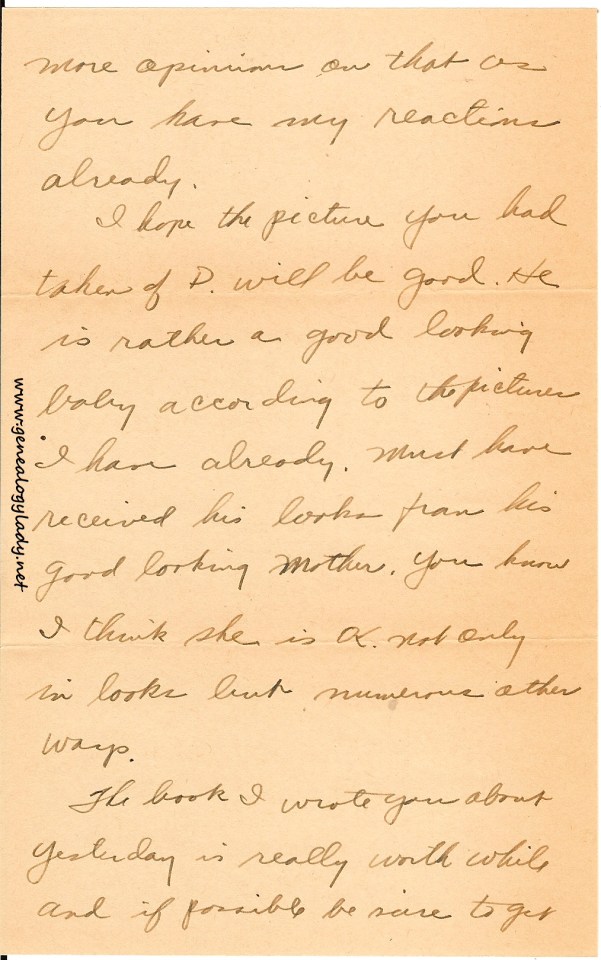 more opinions on that as
you have my reactions
already.
I hope the picture you had
taken of D. will be good. He
is rather a good looking
baby according to the pictures
I have already. Must have
received his looks from his
good looking Mother. You know
I think she is O.K. not only
in looks but numerous other
ways.
The book I wrote you about
yesterday is really worth while
and if possible be sure to get
www.genealogylady.net